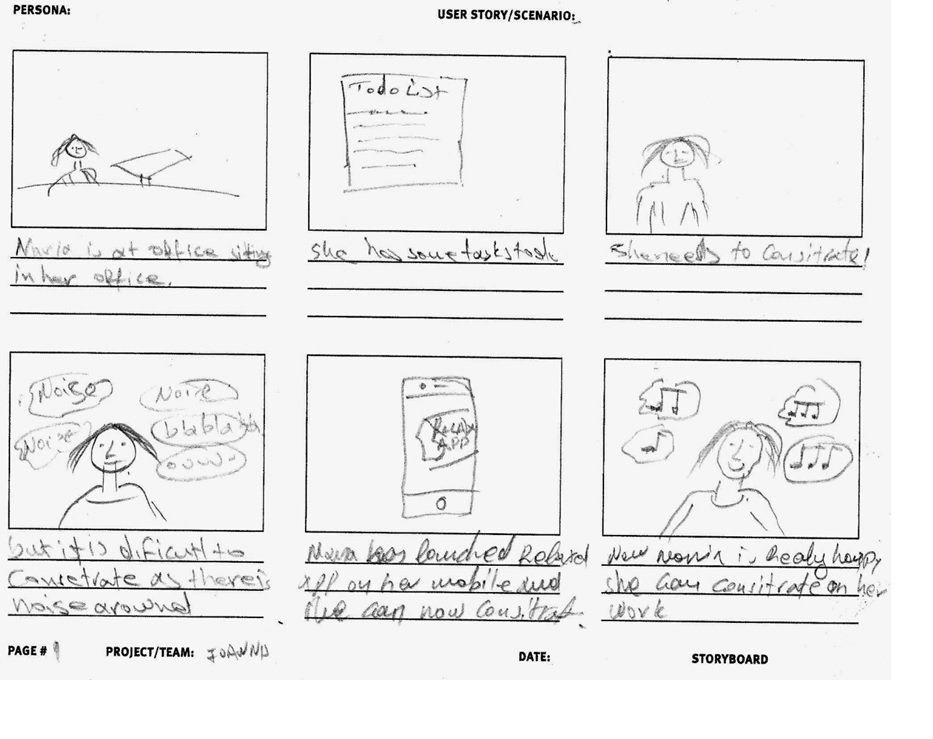 PERSONA:
USER STORY/SCENARIO:
Todo List
Maria is at office sitting
in her office.
she has some tasks todo
She needs to Consitrate!
Noise
Noise
Noise
blablabla
ouuu
but it is dificult to
Concetrate as there is
noise around
RELAX
APP
Maria has launched Relaxed
app on her mobile and
She can now Consitrat.
Now Maria is Realy happy
she can consitrate on her
work
PAGE # 1
PROJECT/TEAM: IOANNA
DATE:
STORYBOARD